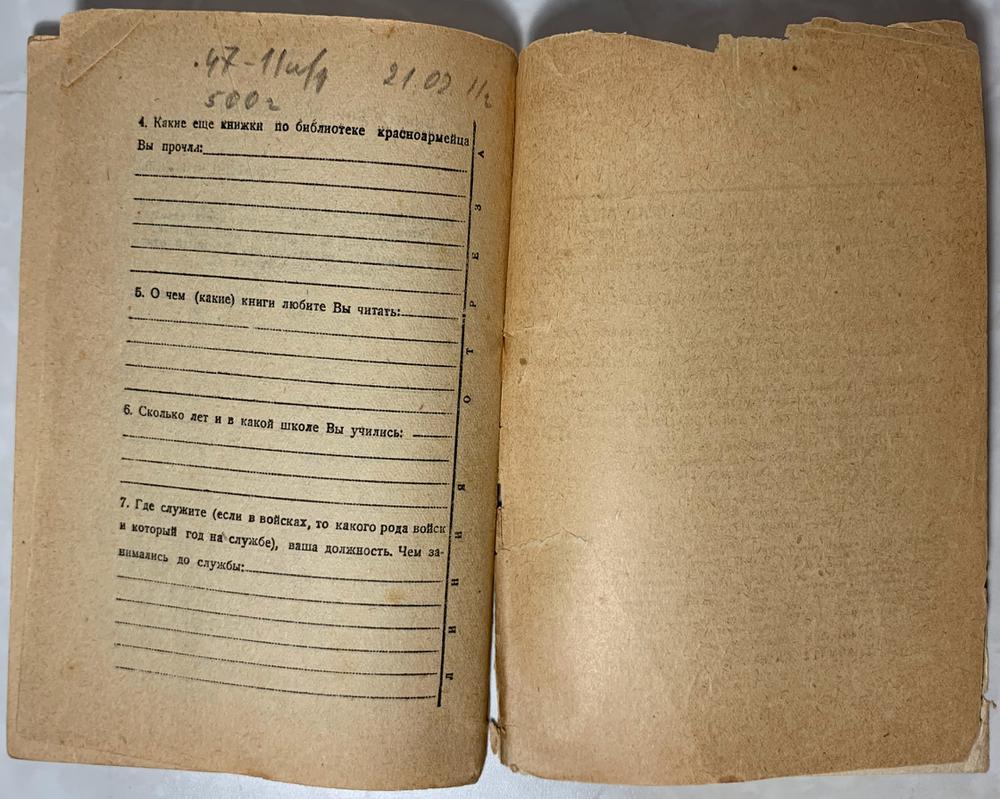 21.02
500г
4. Какие еще книжки по библиотеке красноармейца
Вы прочли:
5. О чем (какие) книги любите Вы читать:
6. Сколько лет и в какой школе Вы учились:
7. Где служите (если в войсках, то какого рода войск
и который год на службе), ваша должность. Чем за-
нимались до службы:
ЛИНИЯ ОТРЕЗА